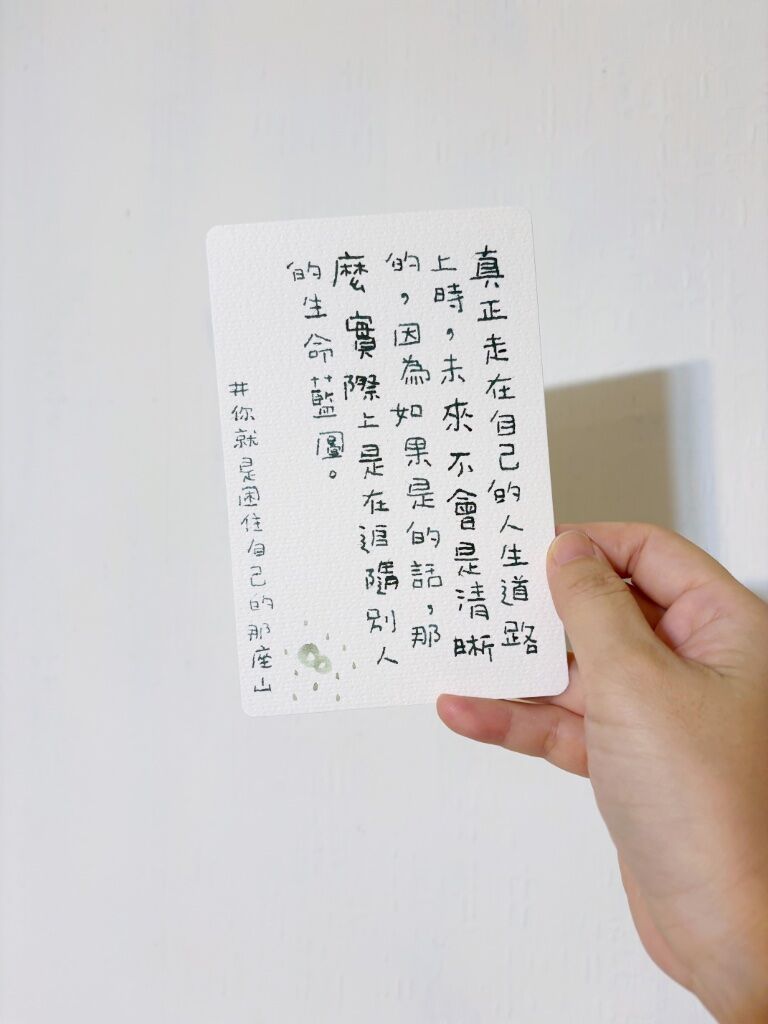 真正走在自己的人生道路
上時,未來不會是清晰
的,因為如果是的話,那
麼實際上是在追隨別人
的生命藍圖。
#你就是困住自己的那座山